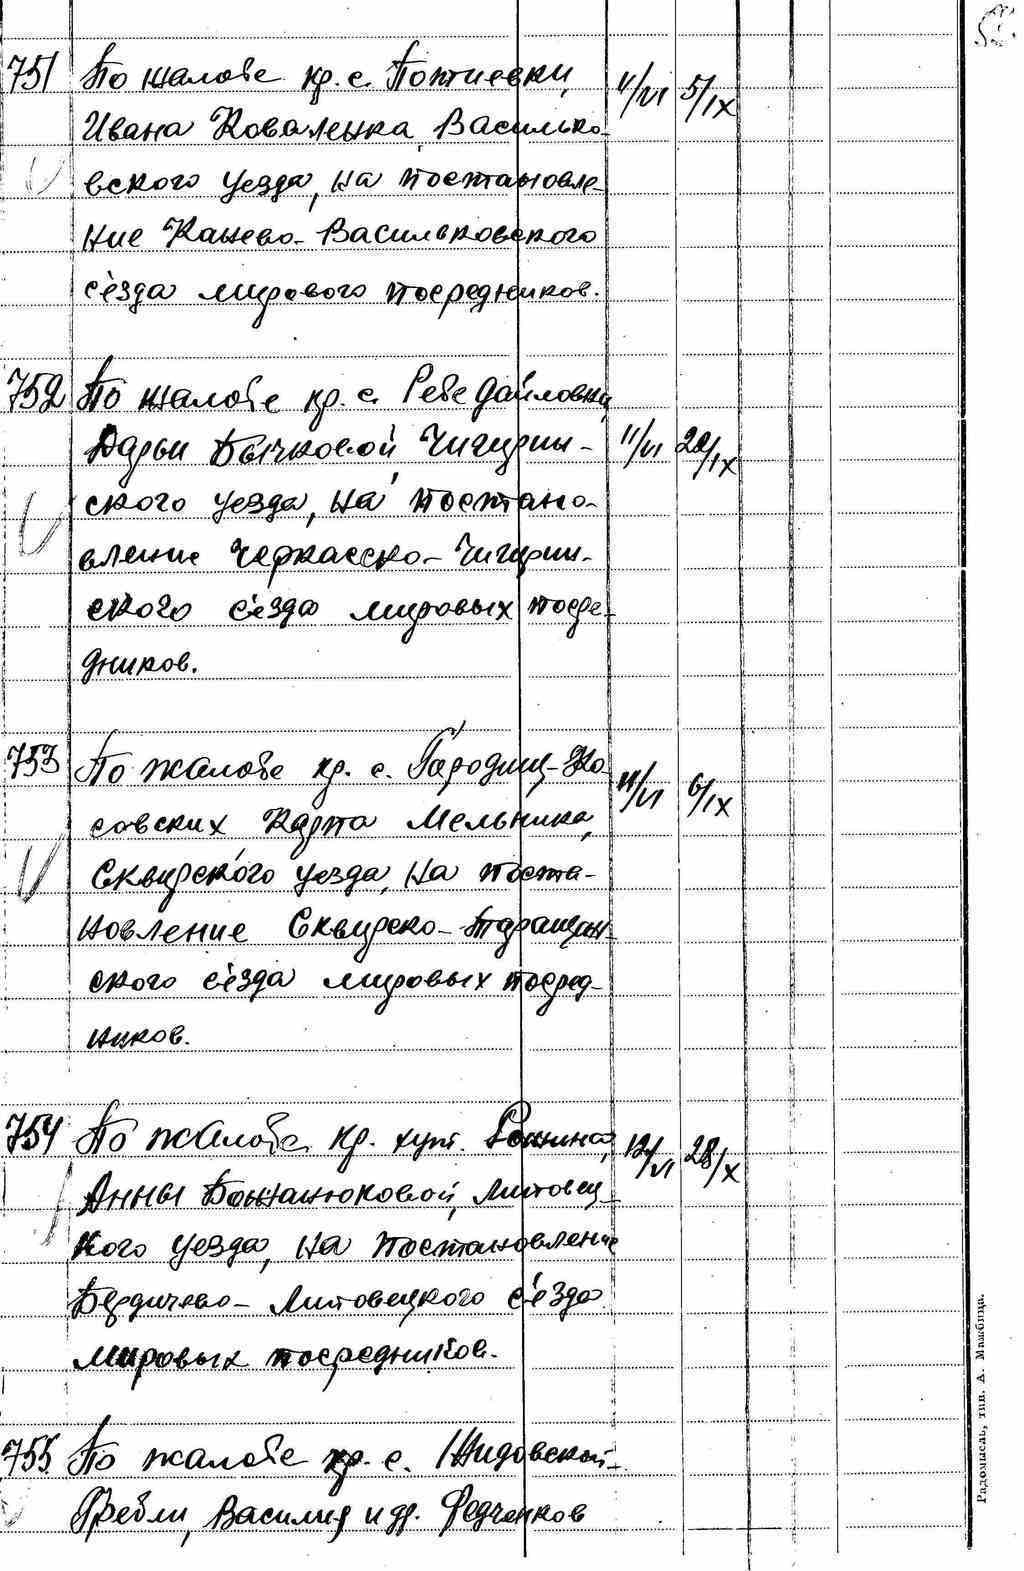 751 По жалобе кр. с. Потиевки, 11/VI 5/IX
Ивана Коваленка, Василько-
вского уезда, на постановле-
ние Канево-Васильковского
с'езда мирового посредников.
752 По жалобе кр. с. Ребедайловки, 11/VI 22/IX
Дарьи Бычковой, Чигирин-
ского уезда, на постано-
вление Черкасско-Чигирин-
ского с'езда мировых посре-
дников.
753 По жалобе кр. с. Городищ-Ко- 11/VI 6/IX
совских Карпа Мельника,
Сквирского уезда, на поста-
новление Сквирско-Таращан-
ского с'езда мировых посред-
ников.
754 По жалобе кр. хут. 12/VI 28/X
Анны Божанюковой, Липовец-
кого уезда, на постановление
Бердичево-Липовецкого с'езда
мировых посредников.
755 По жалобе кр. с. Жидовской-
Гребли, Василия и др. Федченков
Радомысль, тип. А. Мажбица.